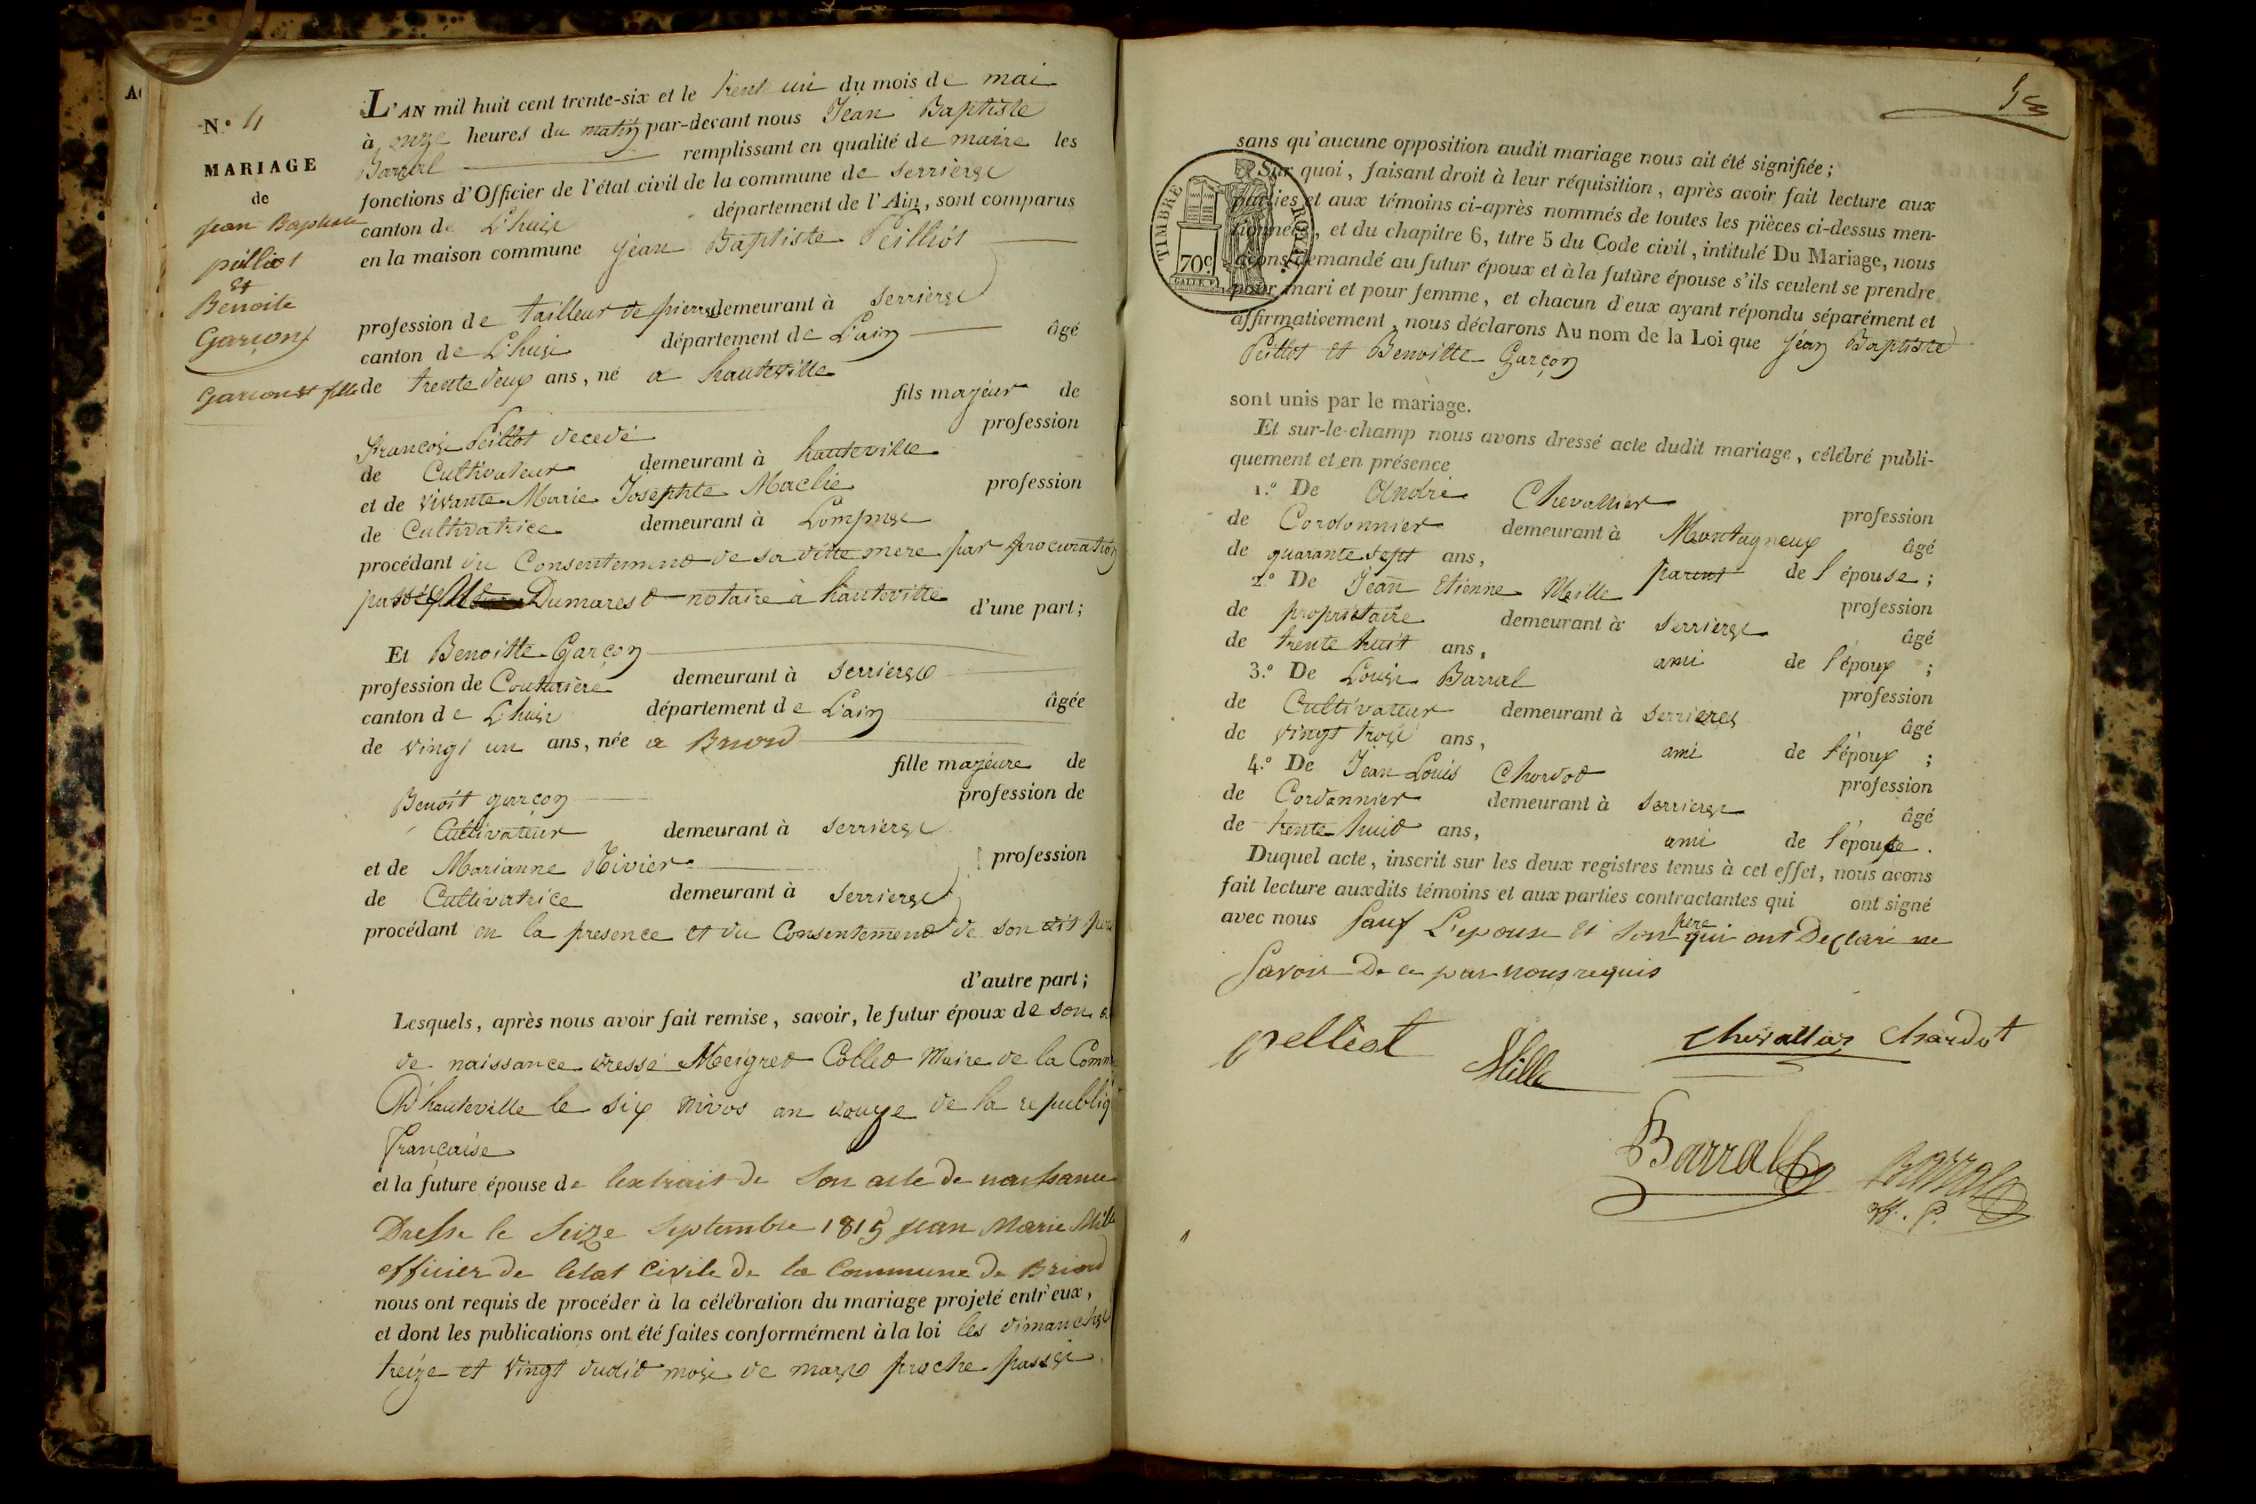 N.º 11
MARIAGE
de
jean Baptiste
pilliot
et
Benoite
Garçon
Garçon fille
L'AN mil huit cent trente-six et le trente un du mois de mai
à onze heures du matin par-devant nous Jean Baptiste
Barral remplissant en qualité de maire les
fonctions d'Officier de l'état civil de la commune de Serrieres
canton de L'huis département de l'Ain, sont comparus
en la maison commune jean Baptiste Peilliot
profession de tailleur de pierre demeurant à Serrieres
canton de L'huis département de L'ain âgé
de trente deux ans, né a hauteville
fils majeur de
François Peillot decedé profession
de Cultivateur demeurant à hauteville
et de vivante Marie Josephte Maclie profession
de Cultivatrice demeurant à Lompnes
procédant du Consentement de sa ditte mere par procuration
passé Dumarest notaire à hauteville d'une part;
Et Benoitte Garçon
profession de Couturière demeurant à Serrieres
canton de L'huis département de L'ain âgée
de vingt un ans, née a Briord
fille majeure de
Benoit garçon profession de
Cultivateur demeurant à Serrieres
et de Marianne Rivier profession
de Cultivatrice demeurant à Serrieres
procédant en la presence et du Consentement de son dit pere
d'autre part;
Lesquels, après nous avoir fait remise, savoir, le futur époux de son
de naissance dressé Meigret Collet Maire de la Comm
D'hauteville le six nivos an douze de la republiq
française
et la future épouse de lextrait de son acte de naissance
Dressé le seize Septembre 1815 jean Marie Mille
officier de letat civile de la Commune de Briord
nous ont requis de procéder à la célébration du mariage projeté entr'eux,
et dont les publications ont été faites conformément à la loi les dimanches
treize et vingt dudit mois de mars proche passés
sans qu'aucune opposition audit mariage nous ait été signifiée;
Sur quoi, faisant droit à leur réquisition, après avoir fait lecture aux
parties et aux témoins ci-après nommés de toutes les pièces ci-dessus men-
tionnées, et du chapitre 6, titre 5 du Code civil, intitulé Du Mariage, nous
avons demandé au futur époux et à la future épouse s'ils veulent se prendre
pour mari et pour femme, et chacun d'eux ayant répondu séparément et
affirmativement, nous déclarons Au nom de la Loi que jean Baptiste
Peillot et Benoitte Garçon
TIMBRE ROYAL
70 c.
sont unis par le mariage.
Et sur-le-champ nous avons dressé acte dudit mariage, célébré publi-
quement et en présence
1.º De André Chevallier profession
de Cordonnier demeurant à Montagneux âgé
de quarante sept ans, parent de l'épouse;
2.º De Jean Etienne Mille profession
de propriétaire demeurant à Serrieres âgé
de trente huit ans, ami de l'époux;
3.º De Louis Barral profession
de Cultivateur demeurant à Serrieres âgé
de vingt trois ans, ami de l'époux;
4.º De Jean Louis Chardot profession
de Cordonnier demeurant à Serrieres âgé
de trente huit ans, ami de l'épouse.
Duquel acte, inscrit sur les deux registres tenus à cet effet, nous avons
fait lecture auxdits témoins et aux parties contractantes qui ont signé
avec nous sauf L'epouse et son pere qui ont Declaré ne
savoir De ce par nous requis
pelliot
Mille
chevallier
chardot
Barral
Barral